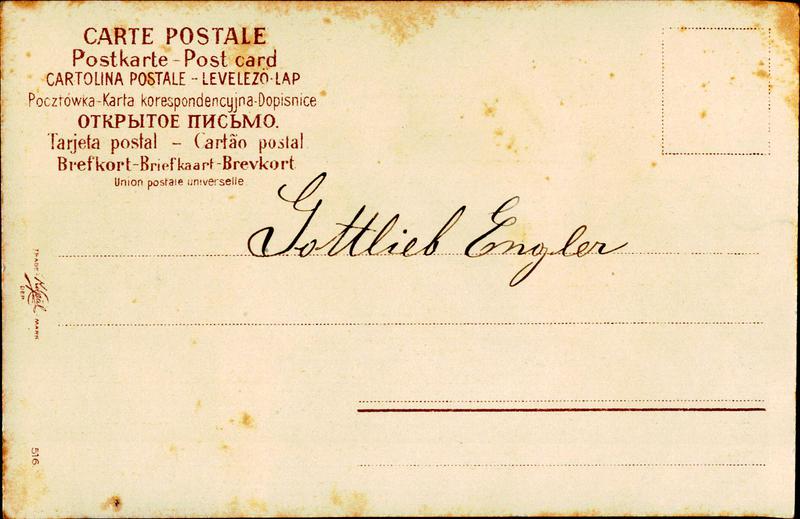 CARTE POSTALE
Postkarte - Post card
CARTOLINA POSTALE - LEVELEZŐ-LAP
Pocztówka-Karta korespondencyjna-Dopisnice
ОТКРЫТОЕ ПИСЬМО.
Tarjeta postal - Cartão postal
Brefkort-Briefkaart-Brevkort
Union postale universelle
Gottlieb Engler
TRADE MARK
DEP.
516